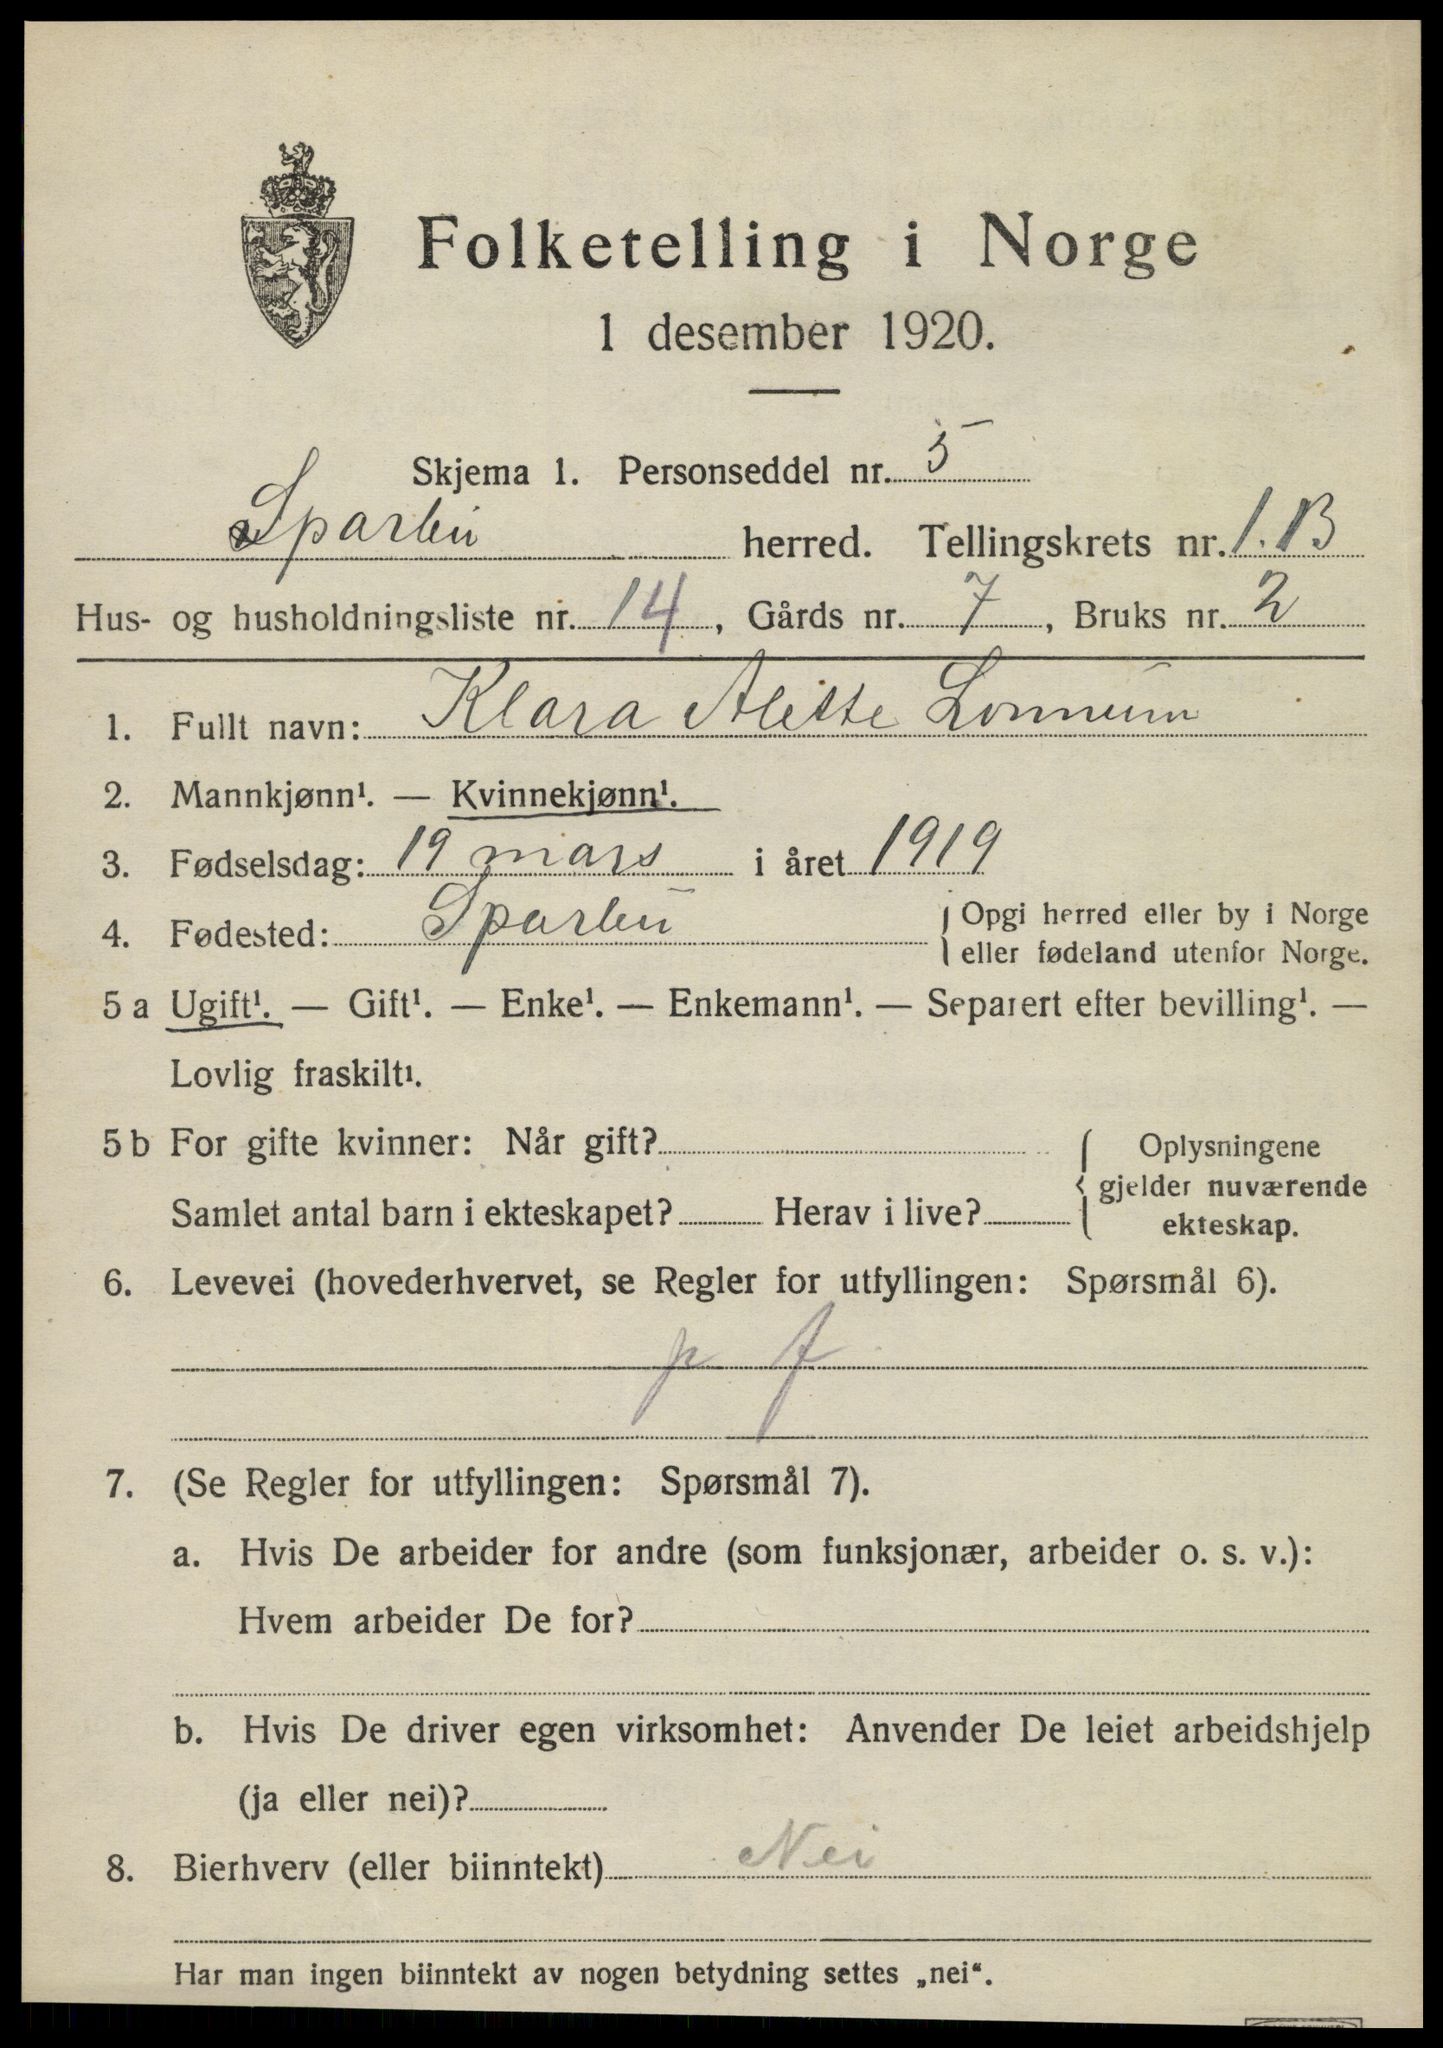 Folketelling i Norge
1 desember 1920.
Skjema 1. Personseddel nr. 5
Sparbu herred. Tellingskrets nr. 1.B
Hus- og husholdningsliste nr. 14, Gårds nr. 7, Bruks nr. 2
1. Fullt navn: Klara Alette Lonnum
2. Mannkjønn¹. — Kvinnekjønn¹.
3. Fødselsdag: 19 mars i året 1919
4. Fødested: Sparbu { Opgi herred eller by i Norge
eller fødeland utenfor Norge.
5 a Ugift¹. — Gift¹. — Enke¹. — Enkemann¹. — Separert efter bevilling¹. —
Lovlig fraskilt¹.
5 b For gifte kvinner: Når gift? { Oplysningene
gjelder nuværende
Samlet antal barn i ekteskapet? Herav i live? ekteskap.
6. Levevei (hovederhvervet, se Regler for utfyllingen: Spørsmål 6).
p f
7. (Se Regler for utfyllingen: Spørsmål 7).
a. Hvis De arbeider for andre (som funksjonær, arbeider o. s. v.):
Hvem arbeider De for?
b. Hvis De driver egen virksomhet: Anvender De leiet arbeidshjelp
(ja eller nei)?
8. Bierhverv (eller biinntekt) Nei
Har man ingen biinntekt av nogen betydning settes „nei“.